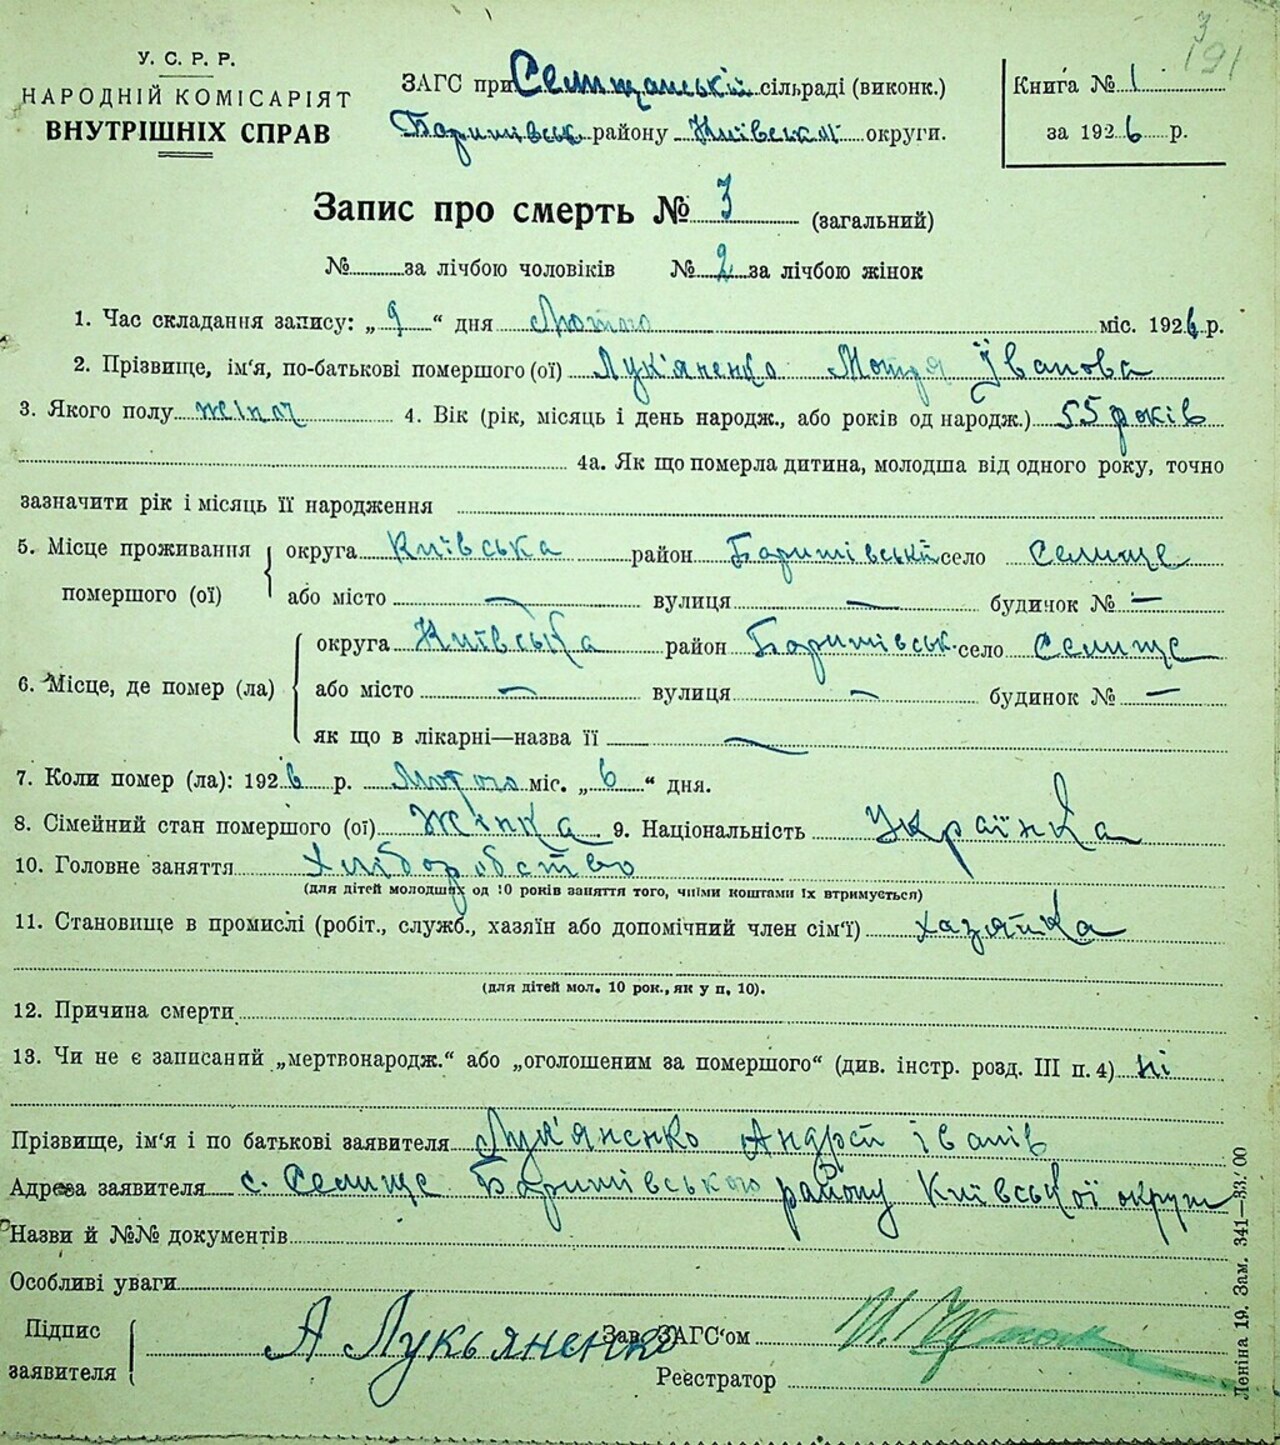 3
191
У. С. Р. Р.
НАРОДНІЙ КОМІСАРІЯТ
ВНУТРІШНІХ СПРАВ
ЗАГС при Селищанській сільраді (виконк.)
Баришівськ району Київської округи.
Книга № 1
за 1926 р.
Запис про смерть № 3 (загальний)
№ за лічбою чоловіків № 2 за лічбою жінок
1. Час складання запису: „9“ дня Лютого міс. 1926 р.
2. Прізвище, ім'я, по-батькові помершого (ої) Лук'яненко Мотря Іванова
3. Якого полу жіноч 4. Вік (рік, місяць і день народж., або років од народж.) 55 років
4а. Як що померла дитина, молодша від одного року, точно
зазначити рік і місяць її народження
5. Місце проживання помершого (ої) округа Київська район Баришівський село Селище
або місто — вулиця — будинок № —
6. Місце, де помер (ла) округа Київська район Баришівськ. село Селище
або місто — вулиця — будинок № —
як що в лікарні—назва її —
7. Коли помер (ла): 1926 р. Лютого міс. „6“ дня.
8. Сімейний стан помершого (ої) Жінка 9. Національність Українка
10. Головне заняття Хліборобство
(для дітей молодших од 10 років заняття того, чиїми коштами їх втримується)
11. Становище в промислі (робіт., служб., хазяїн або допомічний член сім'ї) хазяйка
(для дітей мол. 10 рок., як у п. 10).
12. Причина смерти
13. Чи не є записаний „мертвонародж.“ або „оголошеним за помершого“ (див. інстр. розд. III п. 4) ні
Прізвище, ім'я і по батькові заявителя Лук'яненко Андрій Іванів
Адреса заявителя с. Селище Баришівського району Київської округи
Назви й №№ документів
Особливі уваги
Підпис заявителя А Лукьяненко Зав. ЗАГС'ом
Реєстратор
Леніна 19. Зам. 341—83.00